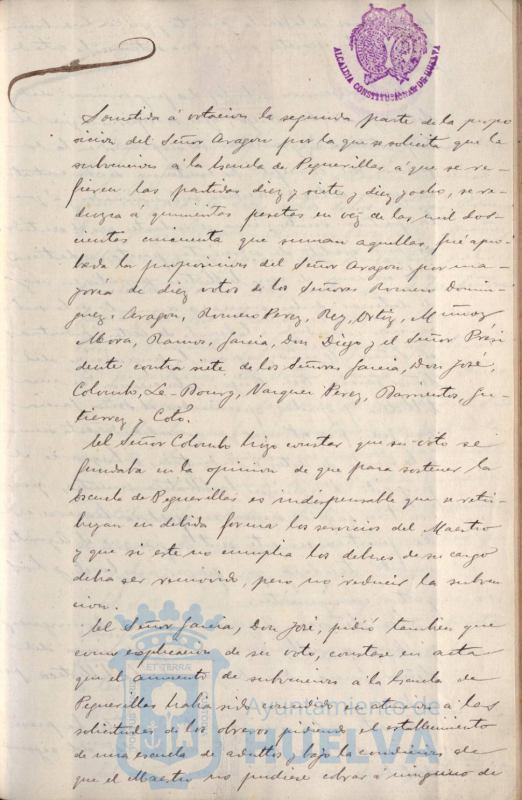 ALCALDIA CONSTITUCIONAL DE HUELVA
Sometida á votacion la segunda parte de la propo
sicion del Señor Aragon por la que se solicita que la
subvencion á la Escuela de Peguerillas, á que se re-
fieren las partidas diez y siete y diez y ocho, se re-
duzca á quinientas pesetas en vez de las mil dos-
cientas cincuenta que suman aquellas, fué apro-
bada la proposicion del Señor Aragon por ma-
yoría de diez votos de los Señores Romero Domin-
guez, Aragon, Romero Perez, Rey, Ortiz, Muñoz
Mora, Ramos, Garcia, Don Diego y el Señor Presi
dente contra siete de los Señores Garcia, Don José,
Colombo, Le-Bourg, Vazquez Perez, Barrientos, Gu-
tierrez y Coto.
El Señor Colombo hizo constar que su voto se
fundaba en la opinion de que para sostener la
Escuela de Peguerillas es indispensable que se retri-
buyan en debida forma los servicios del Maestro
y que si este no cumplia los deberes de su cargo
debia ser removido, pero no reducir la subven
cion.
El Señor Garcia, Don José, pidió tambien que
como explicacion de su voto, constase en acta
que el aumento de subvencion á la Escuela de
Peguerillas habia sido concedido en atencion á las
solicitudes de los obreros pidiendo el establecimiento
de una escuela de adultos y bajo la condicion de
que el Maestro no pudiese cobrar á ninguno de
ET TERRÆ
Ayuntamiento de
HUELVA